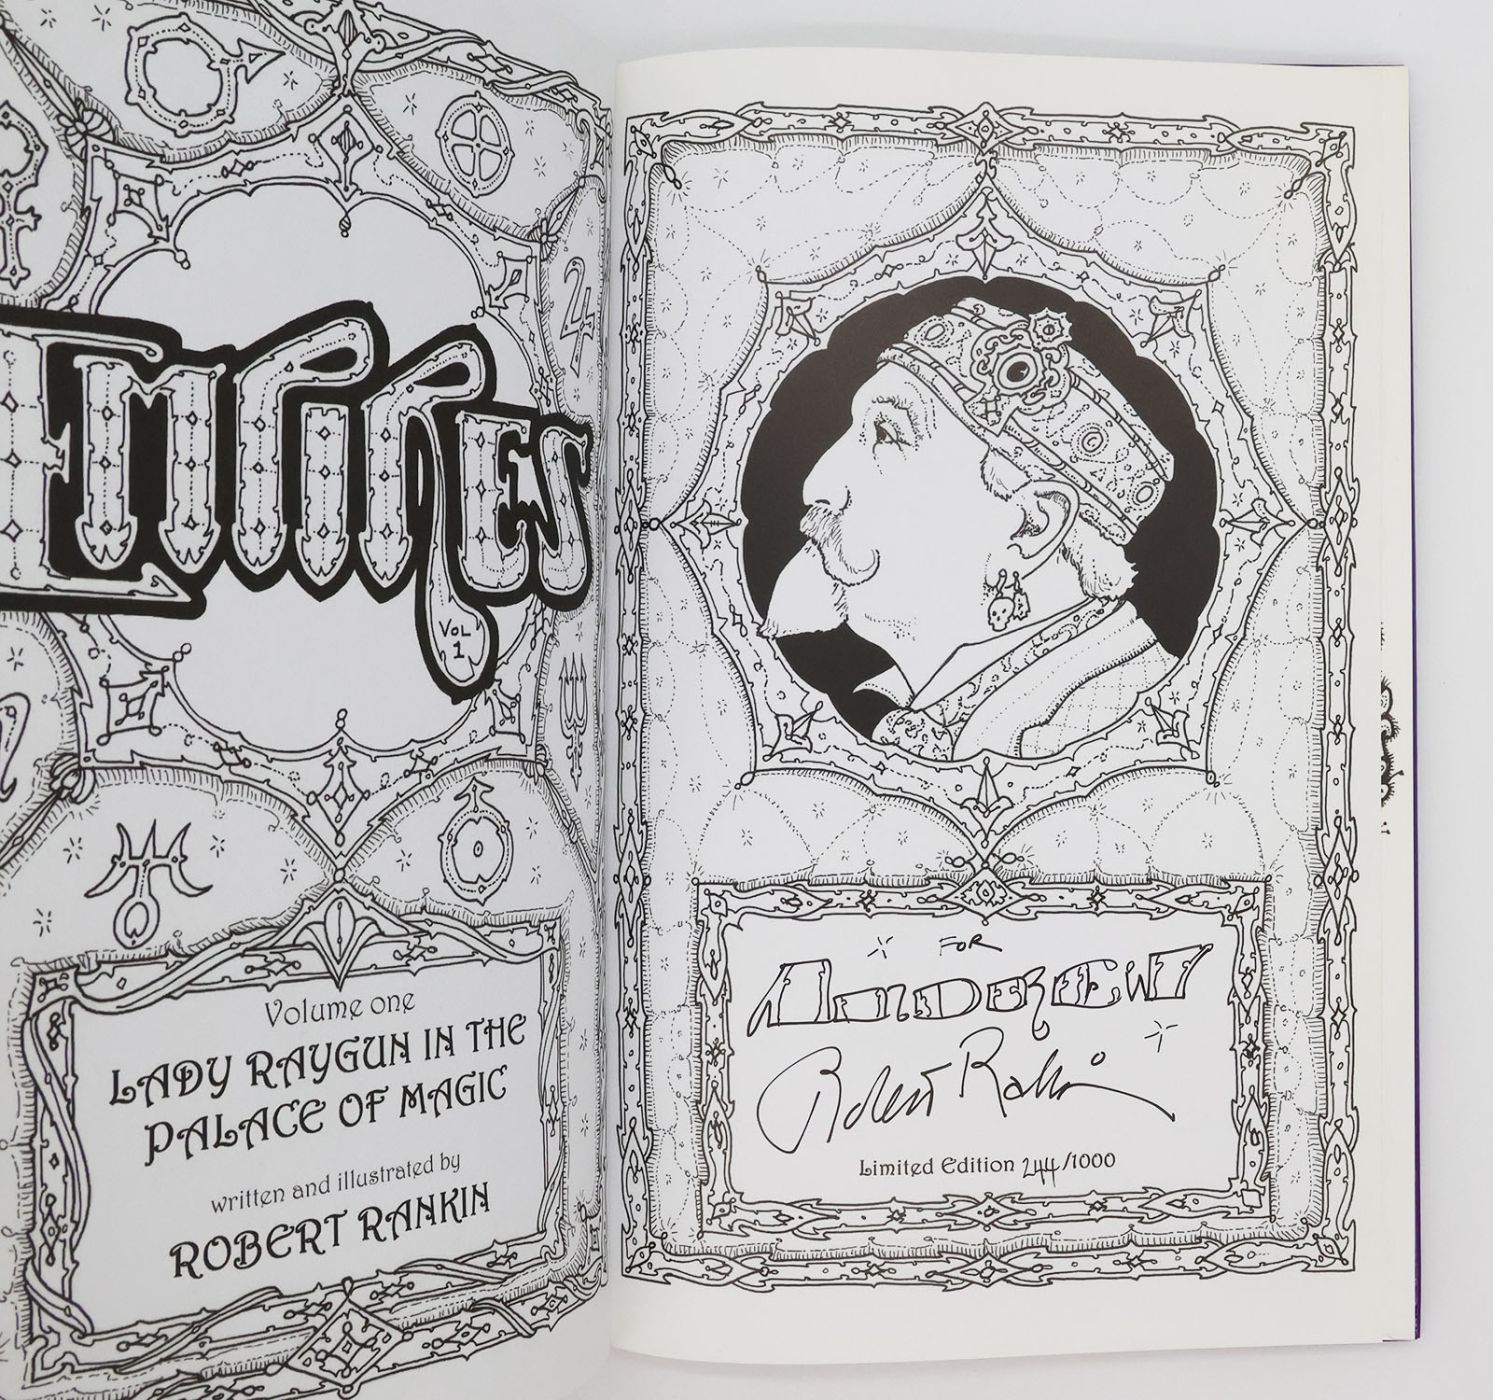 EMPIRES
VOL
1
Volume one
LADY RAYGUN IN THE
PALACE OF MAGIC
written and illustrated by
ROBERT RANKIN
FOR
ANDREW
Robert Rankin
Limited Edition 244/1000